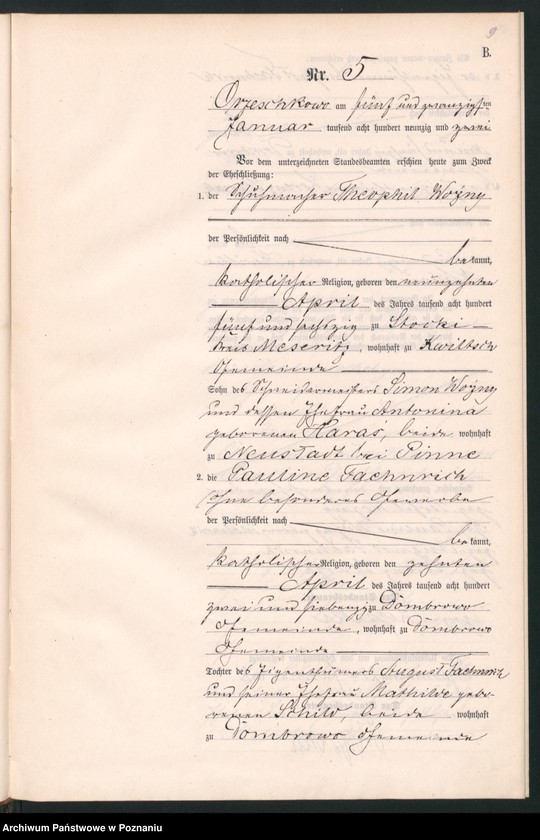 9
B.
Nr. 5
Orzeschkowo am fünf und zwanzigsten
Januar tausend acht hundert neunzig und zwei
Vor dem unterzeichneten Standesbeamten erschien heute zum Zweck
der Eheschließung:
1. der Schuhmacher Theophil Woźny
der Persönlichkeit nach
bekannt,
katholischer Religion, geboren den neunzehnten
April des Jahres tausend acht hundert
fünf und sechszig zu Stocki
Kreis Meseritz, wohnhaft zu Kwiltsch
Gemeinde
Sohn des Schneidermeisters Simon Woźny
und dessen Ehefrau Antonina
geborenen Haraś, beide wohnhaft
zu Neustadt bei Pinne
2. die Pauline Faehnrich
ohne besonderes Gewerbe
der Persönlichkeit nach
bekannt,
katholischer Religion, geboren den zehnten
April des Jahres tausend acht hundert
zwei und siebenzig zu Dombrowo
Gemeinde, wohnhaft zu Dombrowo
Gemeinde
Tochter des Eigenthümers August Faehnrich
und seiner Ehefrau Mathilde gebo-
renen Schild, beide wohnhaft
zu Dombrowo Gemeinde
Archiwum Państwowe w Poznaniu